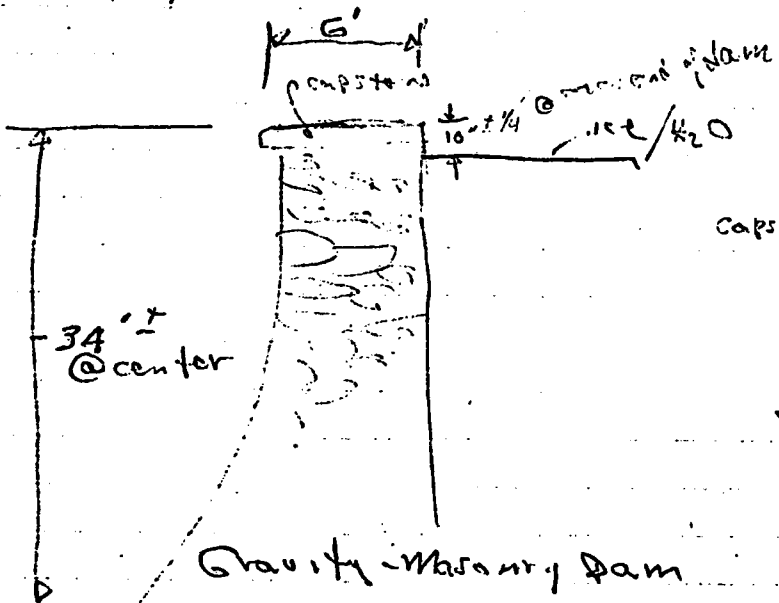 6'
capstones
10" ± 1/4" @ end of Dam
ice / H₂O
caps
34' ±
@ center
Gravity-Masonry Dam